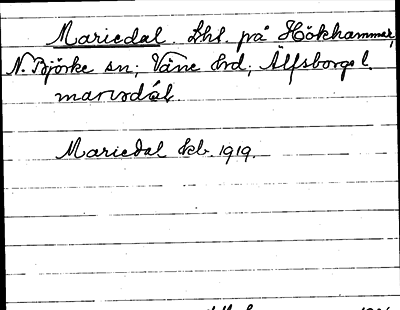 Mariedal. Lhl. på Hökhammar,
N. Björke sn; Väne hrd; Älfsborgs l.
marıdál
Mariedal kb. 1919.